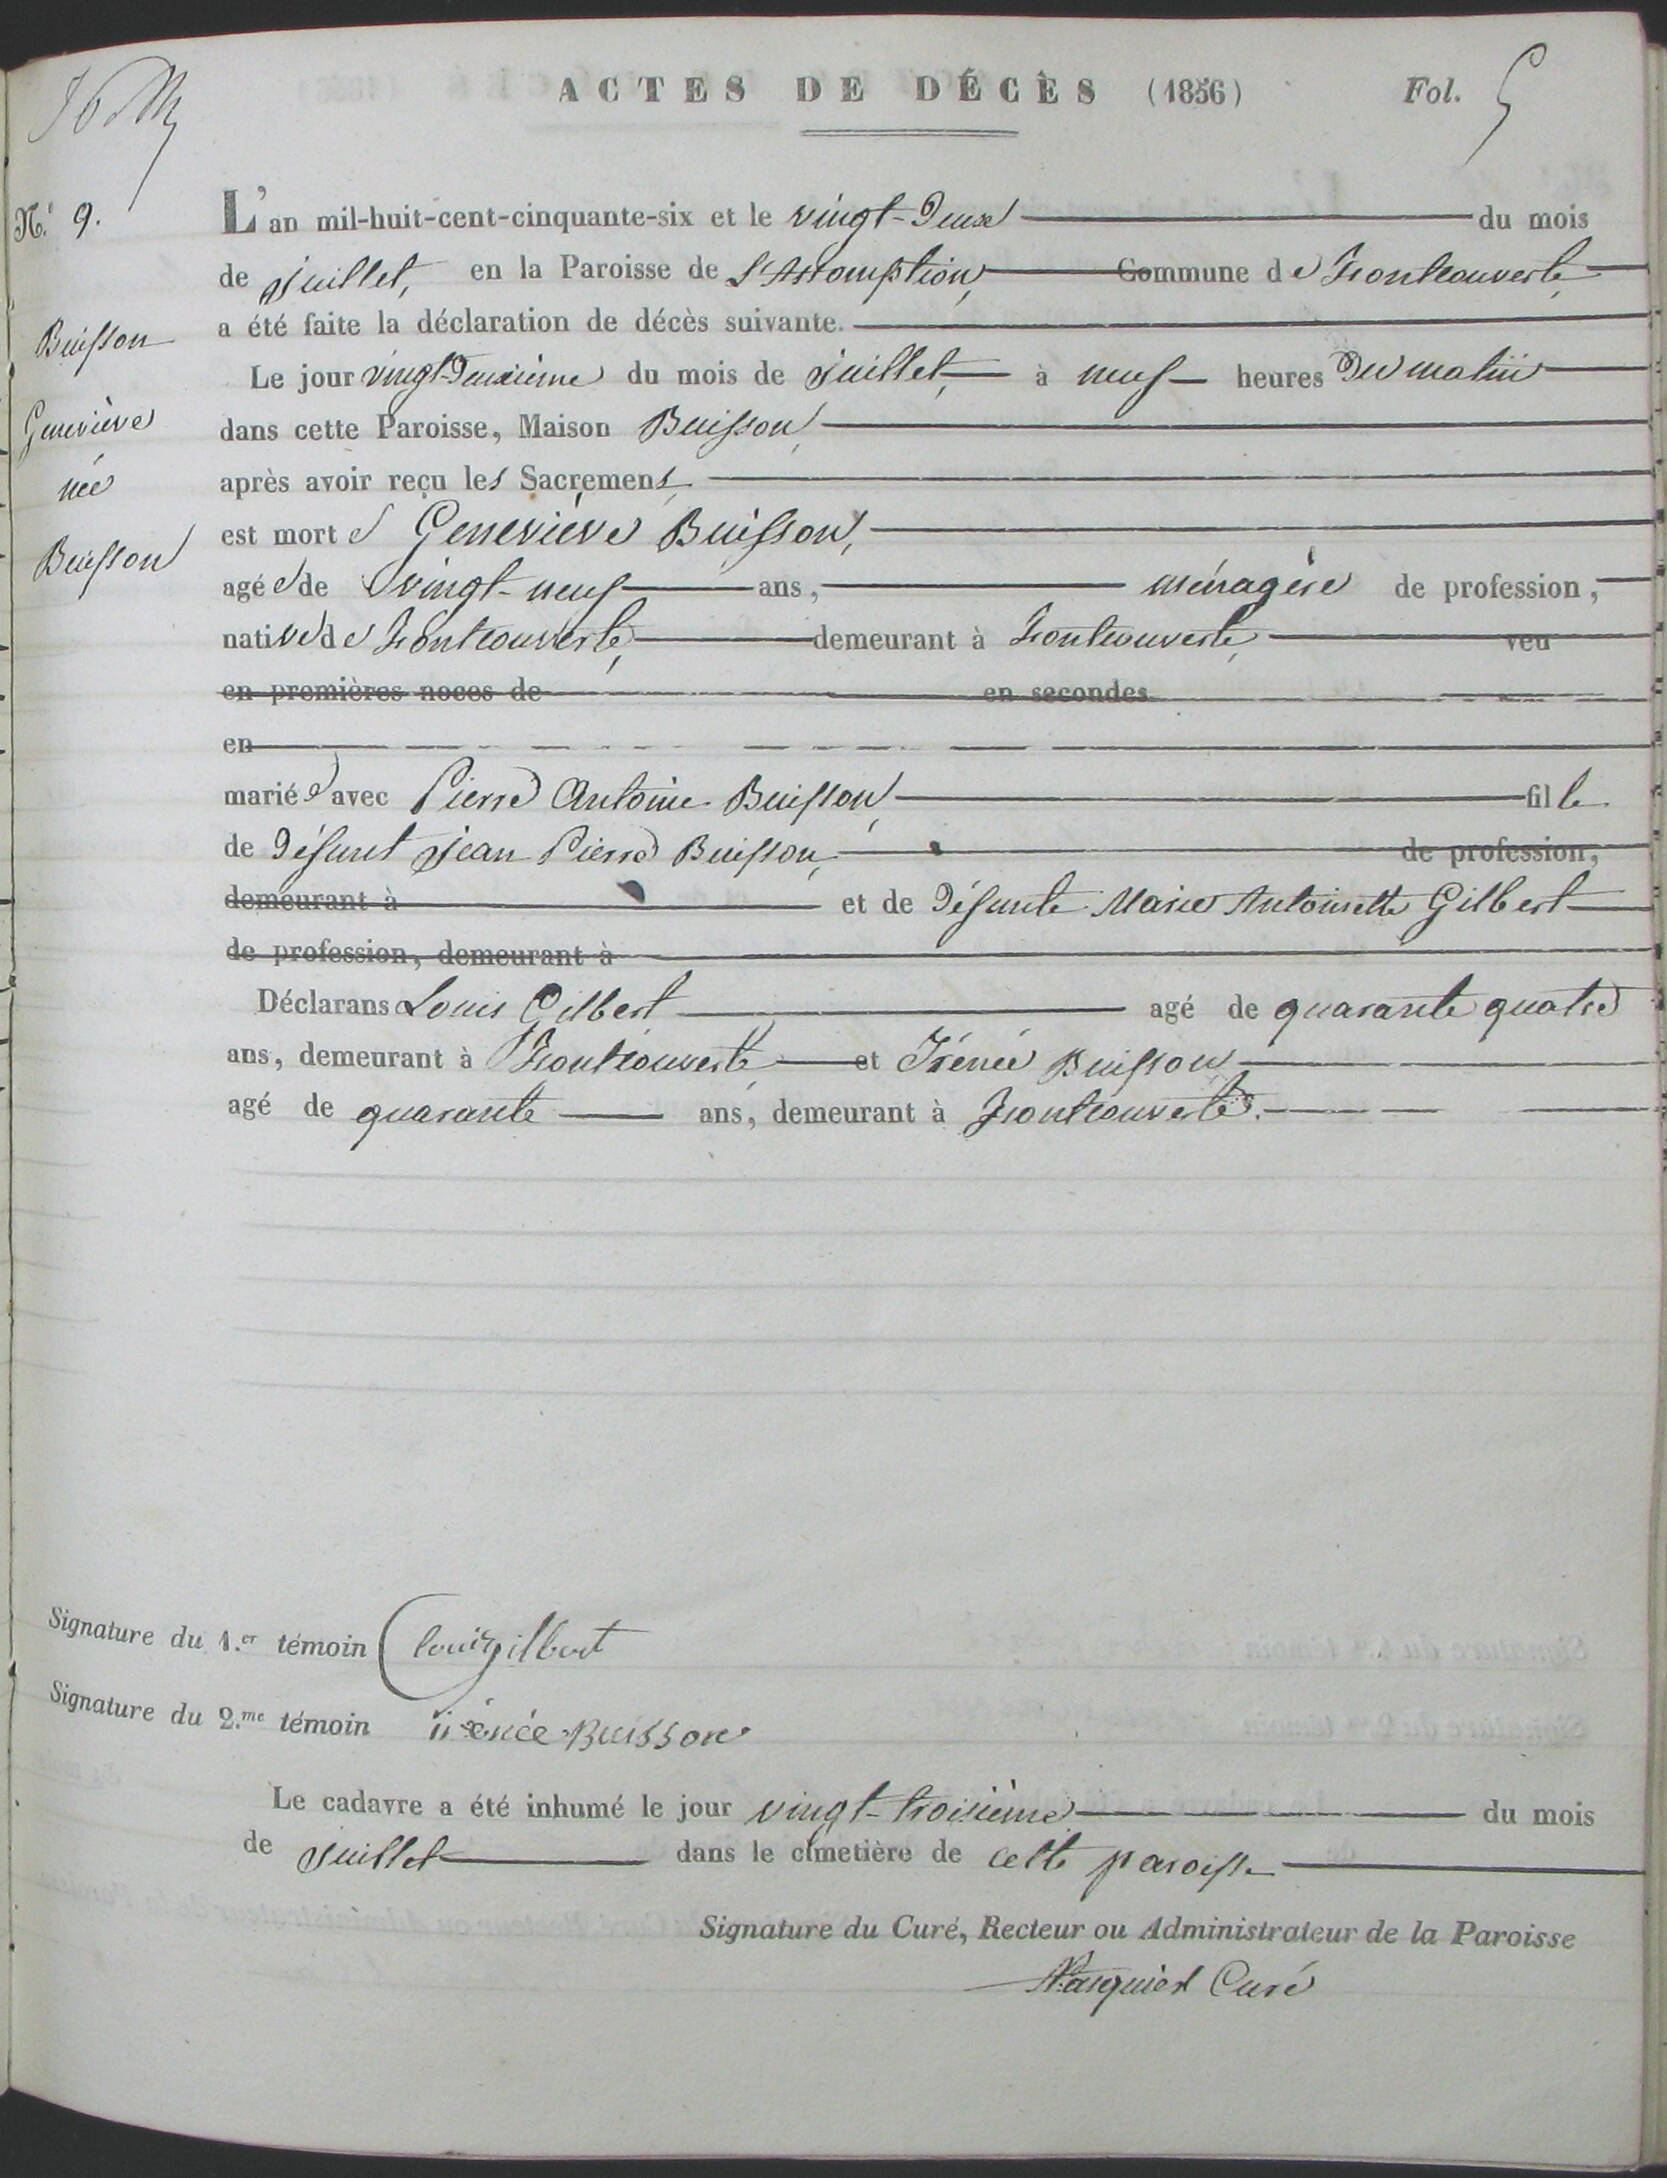 ACTES DE DÉCÈS (1856) Fol. 5
N.º 9.
L'an mil-huit-cent-cinquante-six et le vingt-deux du mois
de juillet, en la Paroisse de l'Assomption, Commune de Fontcouverte,
a été faite la déclaration de décès suivante.
Buisson
Geneviève
née
Buisson
Le jour vingt-deuxième du mois de juillet, à neuf heures du matin
dans cette Paroisse, Maison Buisson,
après avoir reçu les Sacremens,
est morte Geneviève Buisson,
agée de vingt-neuf ans, ménagère de profession,
native de Fontcouverte, demeurant à Fontcouverte, veu
en premières noces de en secondes
en
mariée avec Pierre Antoine Buisson, fille
de défunt Jean Pierre Buisson, de profession,
demeurant à et de défunte Marie Antoinette Gilbert
de profession, demeurant à
Déclarans Louis Gilbert agé de quarante quatre
ans, demeurant à Fontcouverte, et Irénée Buisson
agé de quarante ans, demeurant à Fontcouverte.
Signature du 1.er témoin Louis gilbert
Signature du 2.me témoin irénée Buisson
Le cadavre a été inhumé le jour vingt-troisième du mois
de juillet dans le cimetière de cette paroisse
Signature du Curé, Recteur ou Administrateur de la Paroisse
Curé